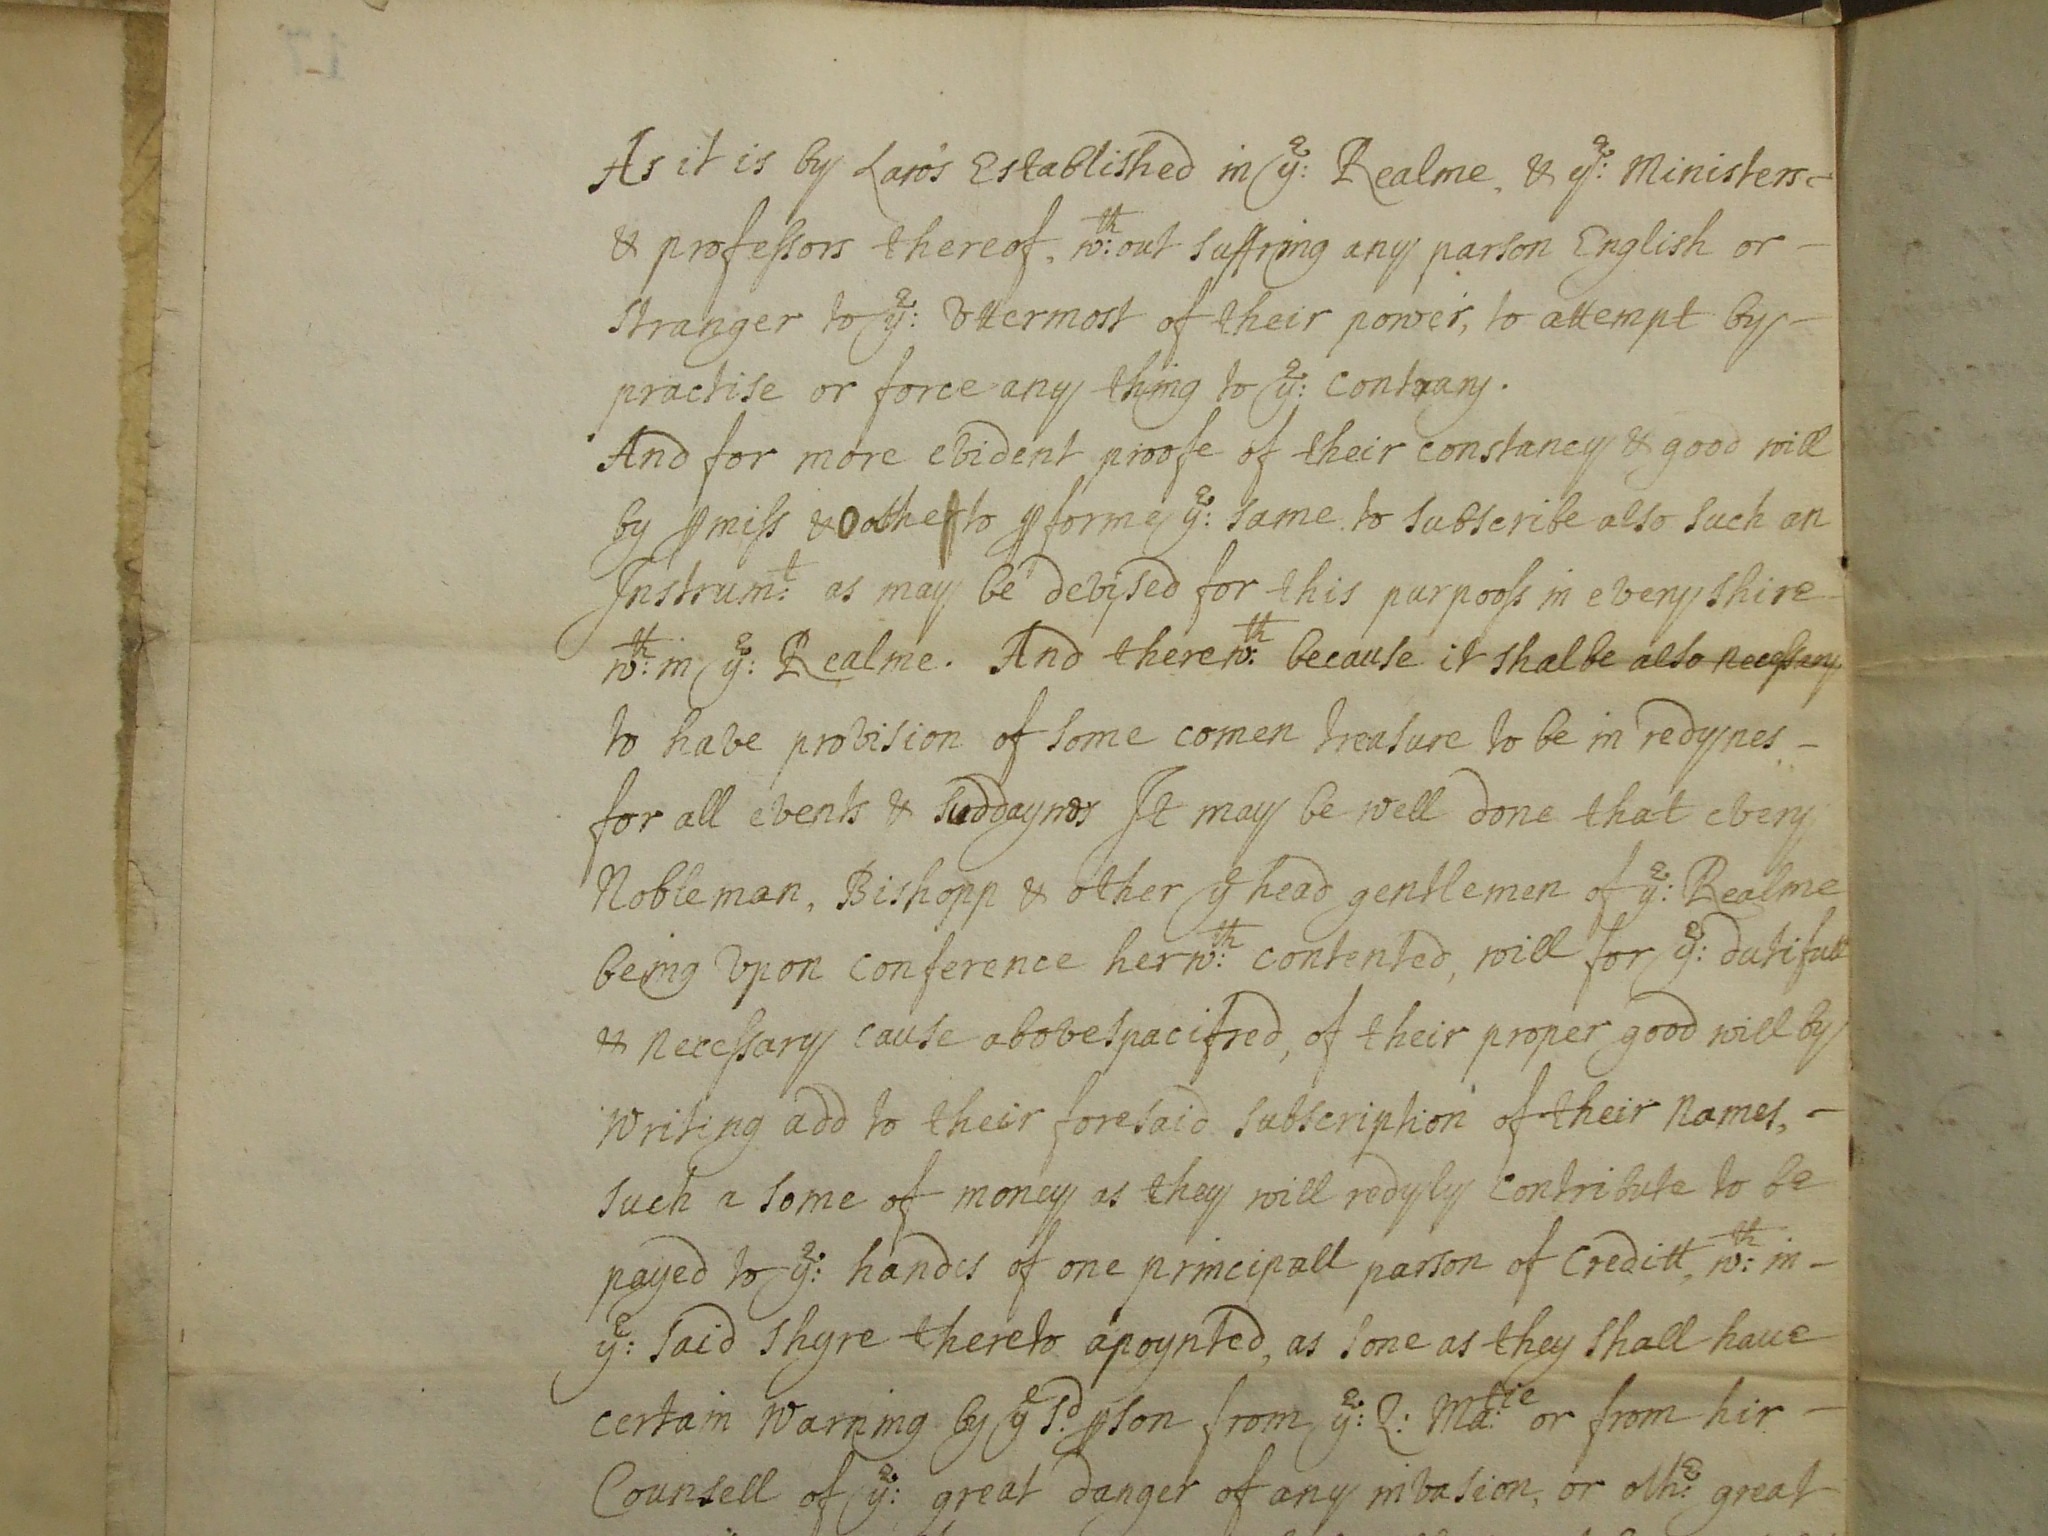 As it is by Laws Established in yͤ: Realme, & yͤ: Ministers –
& professors thereof, wͭͪ: out suffring any parson English or –
stranger to yͤ: vttermost of their power, to attempt by –
practise or force any thing to yͤ: contrary.
And for more evident proofe of their constancy & good will
by ꝑmiss & othe to ꝑforme yͤ: same to subscribe also such an
Instrumͭ: as may be devysed for this purposs in every shire
wͭͪ: in yͤ: Realme. And therewͭͪ: because it shalbe also necessary
to have provision of some comen treasure to be in redynes –
for all events & suddaynes It may be well done that every
Nobleman, Bishopp & other yͤ head gentlemen of yͤ: Realme
being vpon conference herwͭͪ: contented, will for yͤ: dutifull
& necessary cause abovespacifyed, of their proper good will by
writing add to their foresaid subscription of their names, –
such a some of money as they will redyly contribute to be
payed to yͤ: handes of one principall parson of Creditt, wͭͪ: in –
yͤ: said shyre thereto apoynted, as sone as they shall haue
certain warning by yͤ sͩ. ꝑson from yͤ: Q: Ma:ᵗⁱᵉ or from hir –
Counsell of yͤ: great danger of any invasion, or othͤ: great